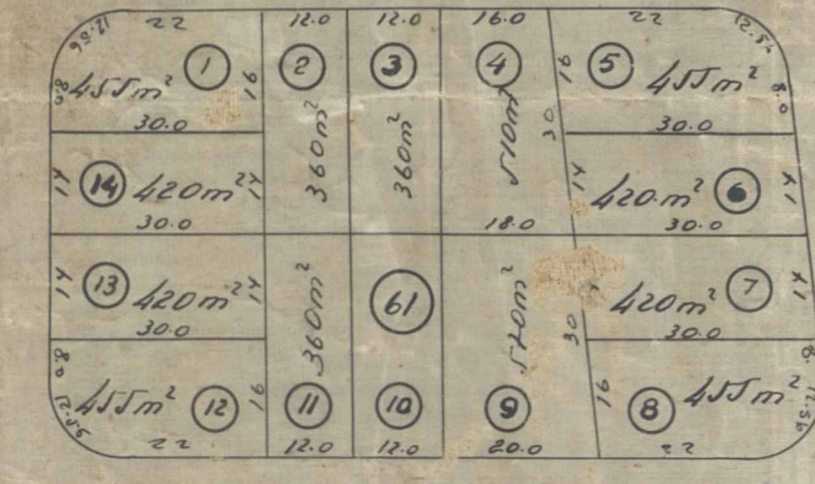 22 12.0 12.0 16.0 22
12.56 12.56
1 2 3 4 5
8.0 455m² 16 16 455m² 8.0
360m² 360m² 510m² 30
30.0 30.0
14 14 420m² 14 14 420m² 6 14
30.0 18.0 30.0
14 13 420m² 14 360m² 61 30 420m² 7 14
30.0 30.0
8.0 455m² 12 16 11 10 9 16 8 455m² 8.
12.56 12.56
22 12.0 12.0 20.0 22